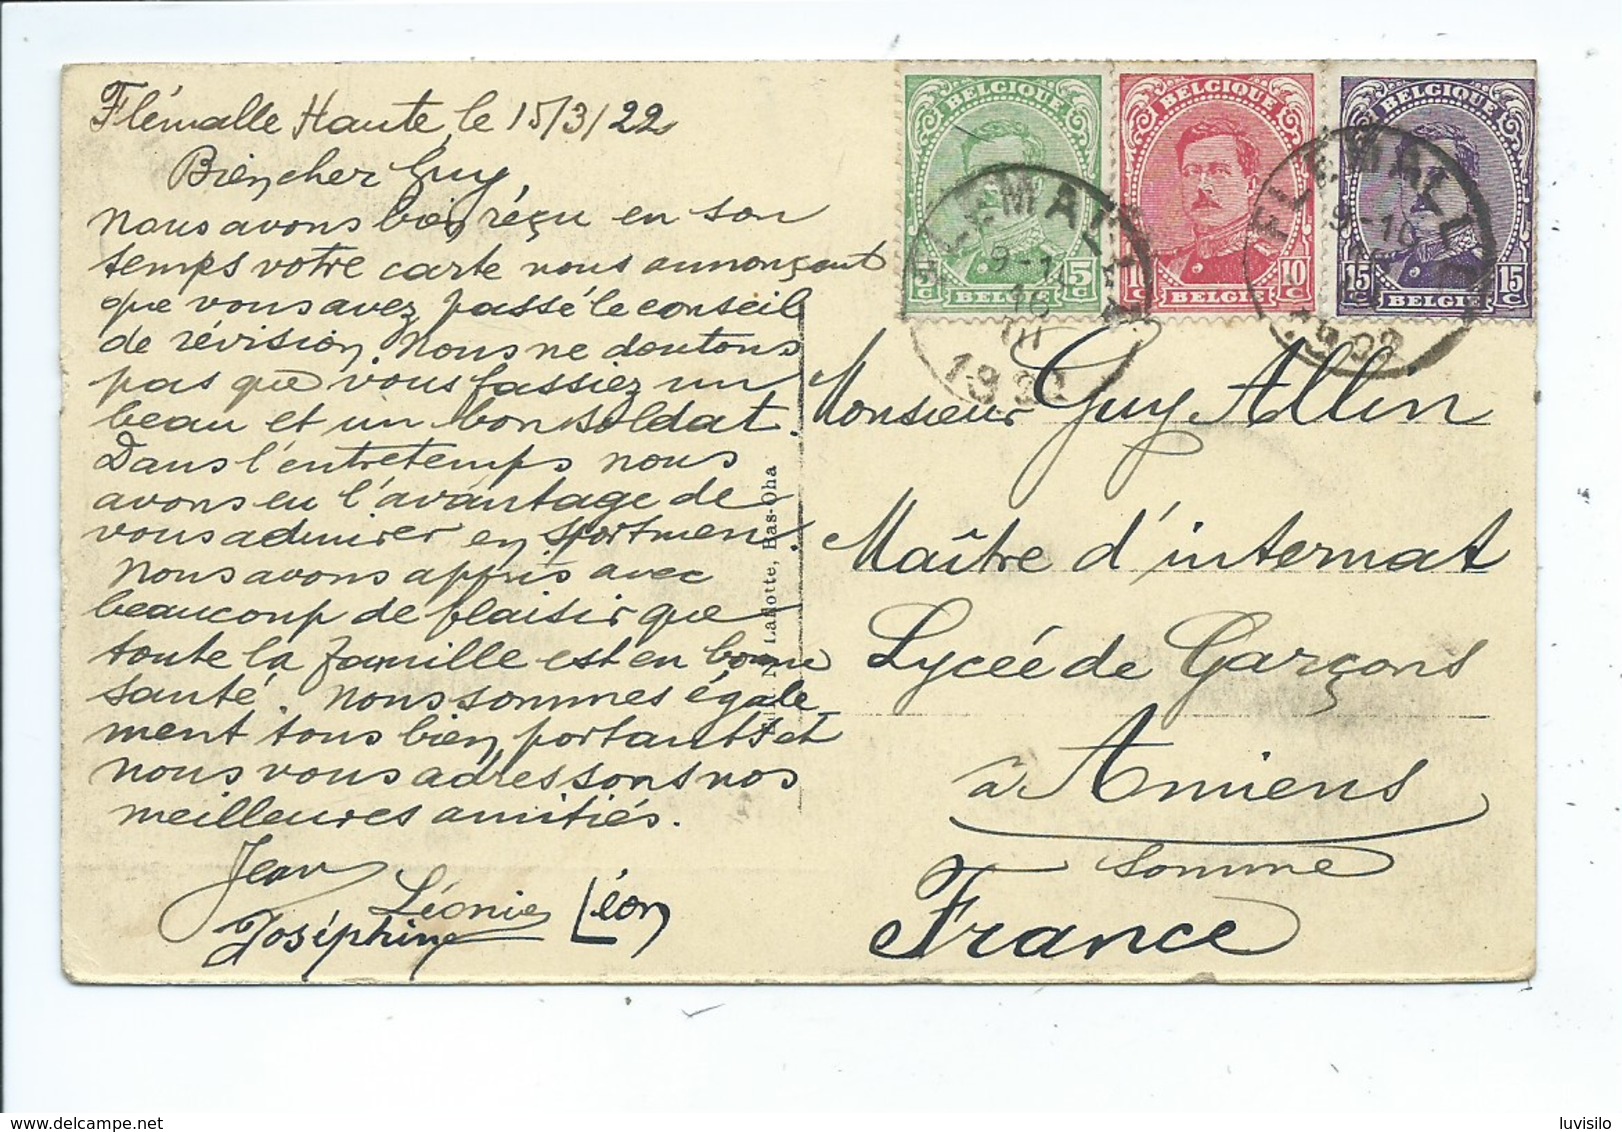 Flémalle Haute, le 15/3/22
Bien cher Guy,
Nous avons bien réçu en son
temps votre carte nous annonçant
que vous avez passé le conseil
de révision. Nous ne doutons
pas que vous fassiez un
beau et un bon soldat.
Dans l'entretemps nous
avons eu l'avantage de
vous admirer en sportmen
Nous avons appris avec
beaucoup de plaisir que
toute la famille est en bonne
santé. Nous sommes égale
ment tous bien portants et
nous vous adressons nos
meilleures amitiés.
Jean
Léonie
Léon
Joséphine
Lallotte, Bas-Oha
BELGIQUE
5 C 5 C
BELGIE
BELGIQUE
10 C 10 C
BELGIE
BELGIQUE
15 C 15 C
BELGIE
FLEMALLE
9-10
16
III
1922
FLEMALLE
9-10
Monsieur Guy Allin
Maître d'internat
Lycée de Garçons
à Amiens
Somme
France
luvisilo